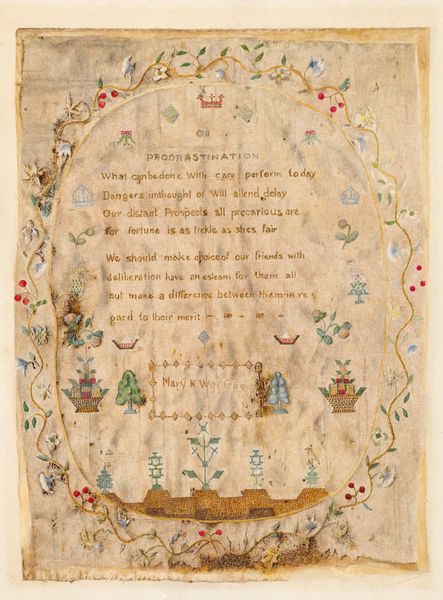 On
PROCRASTINATION
What can be done With care perform to day
Dangers unthought of Will attend delay
Our distant Prospects all precarious are
for fortune is as fickle as shes fair
We should make choice of our friends with
deliberation have an esteam for them all
but make a difference between them in re
gard to their merit
Mary K